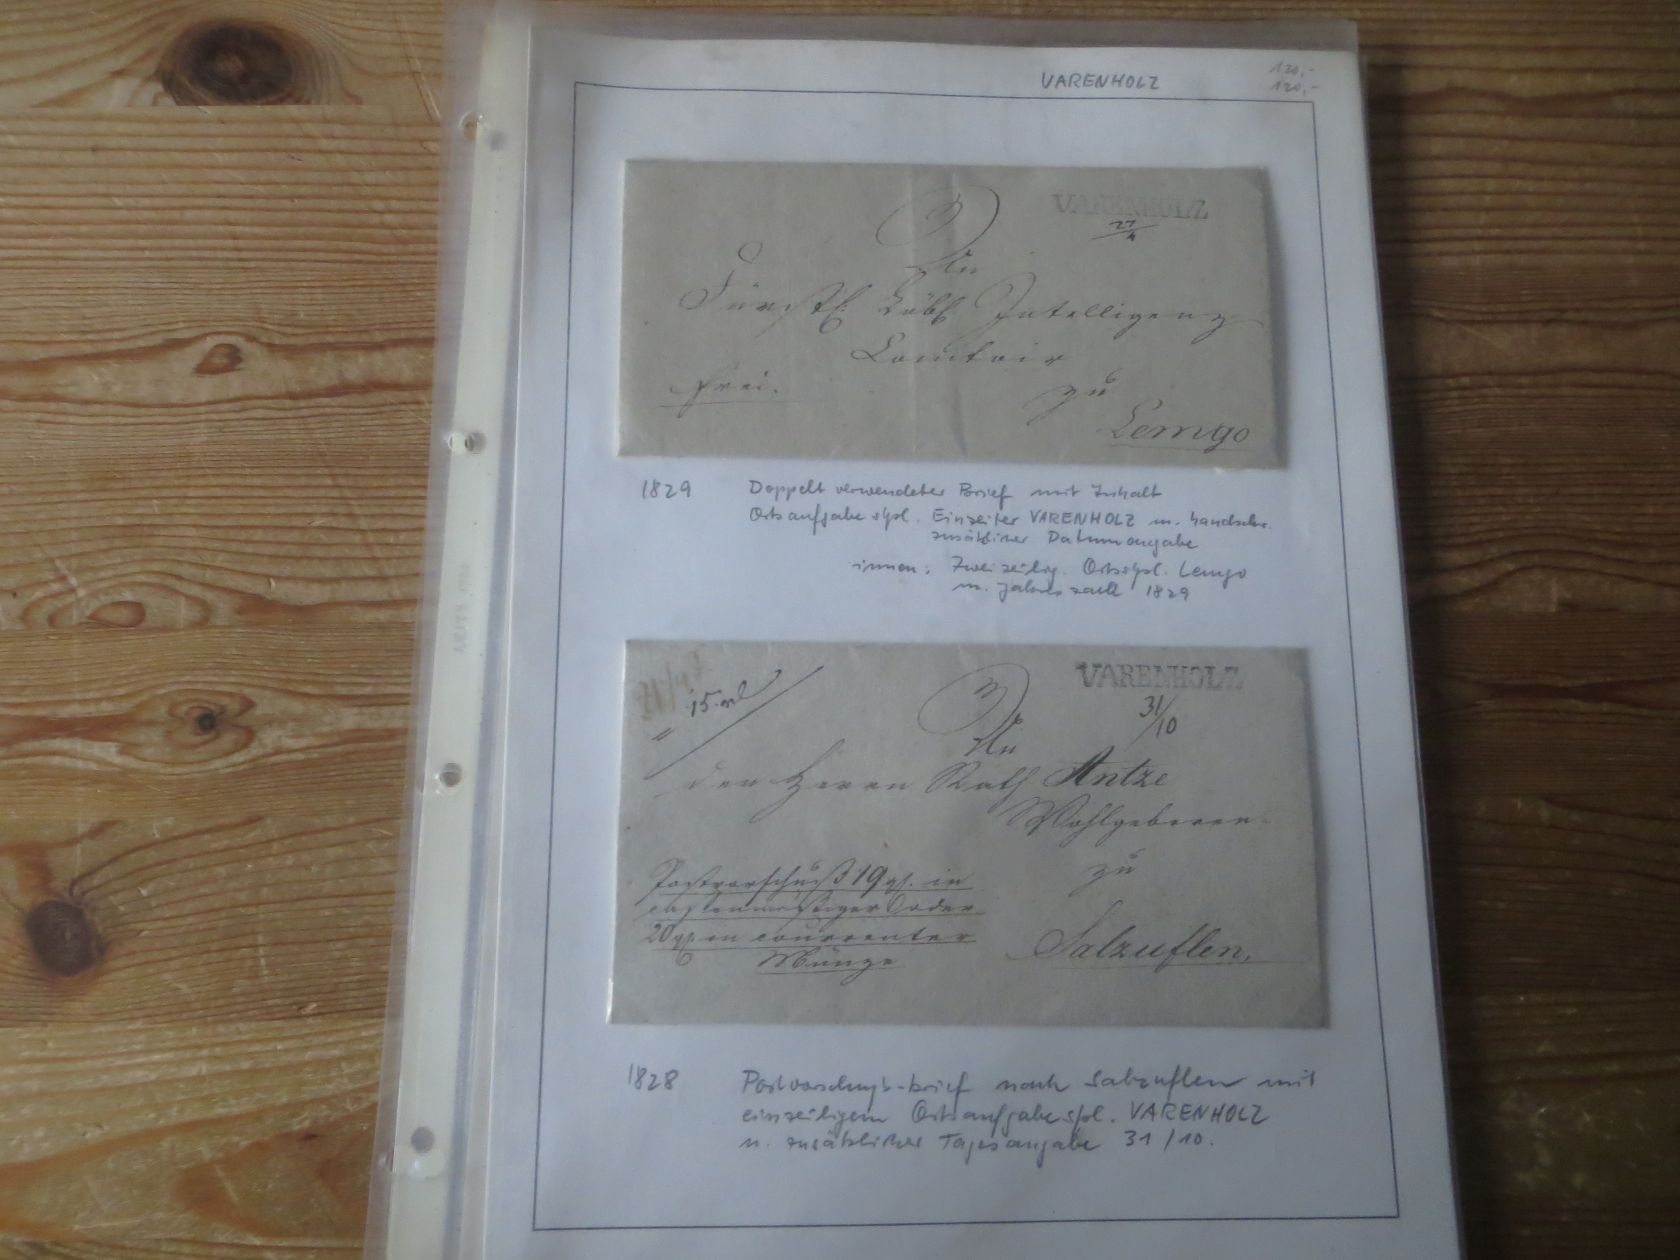 VARENHOLZ
120,-
120,-
VARENHOLZ
27/4
An
Fürstl. Löbl. Intelligenz
Comtoir
frei.
zu
Lemgo
1829 Doppelt verwendeter Brief mit Inhalt
Ortsaufgabestpl. Einzeiler VARENHOLZ m. handschr.
zusätzlicher Datumangabe
innen: Zweizeilig. Ortsstpl. Lemgo
m. Jahreszahl 1829
VARENHOLZ
31/10
An
den Herrn Rath Antze
Wohlgeboren
zu
Salzuflen,
Postvorschuß 19 gl. in
cassenmäßiger oder
20 gl. in courrenter
Münze
1828 Postvorschuß-brief nach Salzuflen mit
einzeiligem Ortsaufgabestpl. VARENHOLZ
u. zusätzlicher Tagesangabe 31/10.